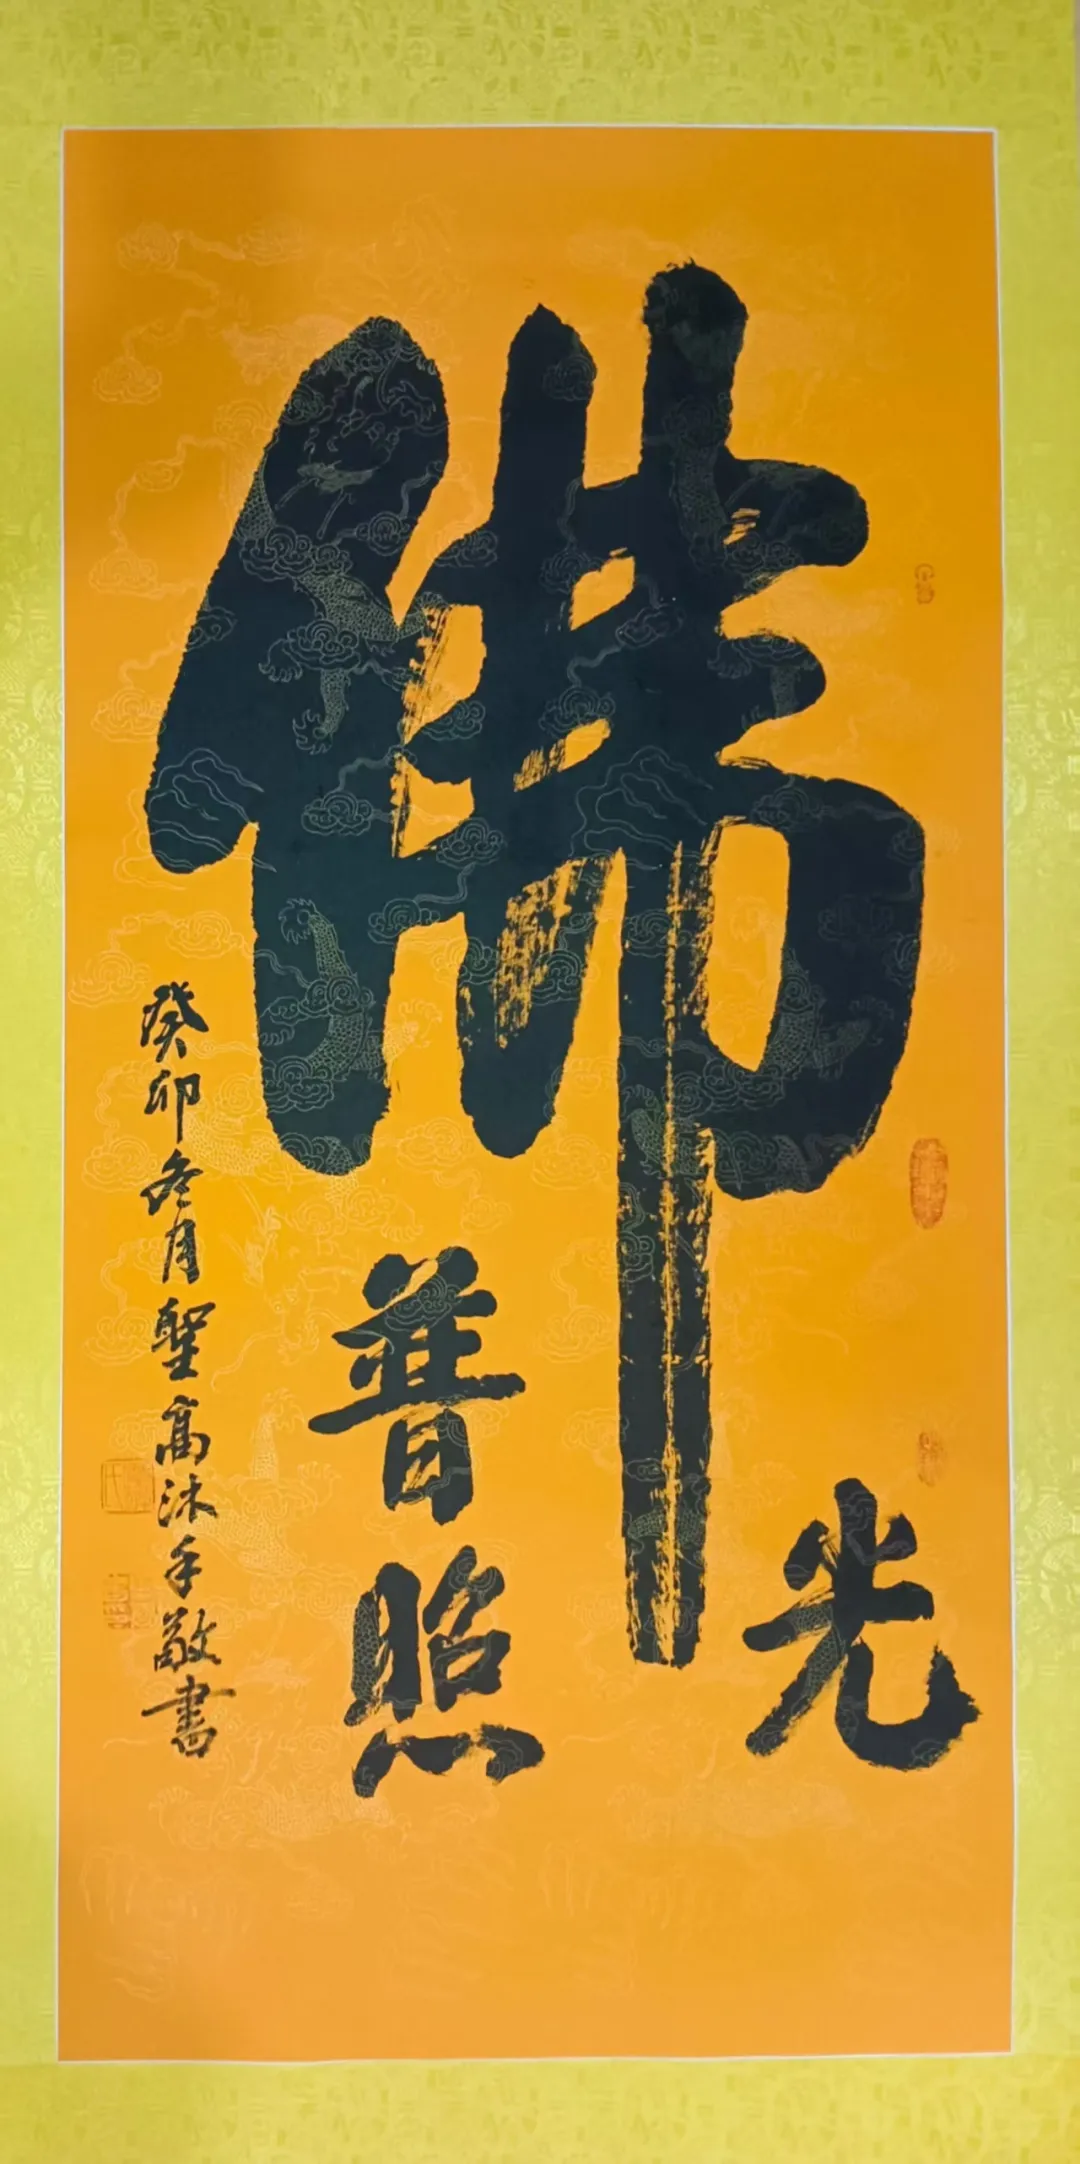 佛光
普照
癸卯冬月聖高沐手敬書